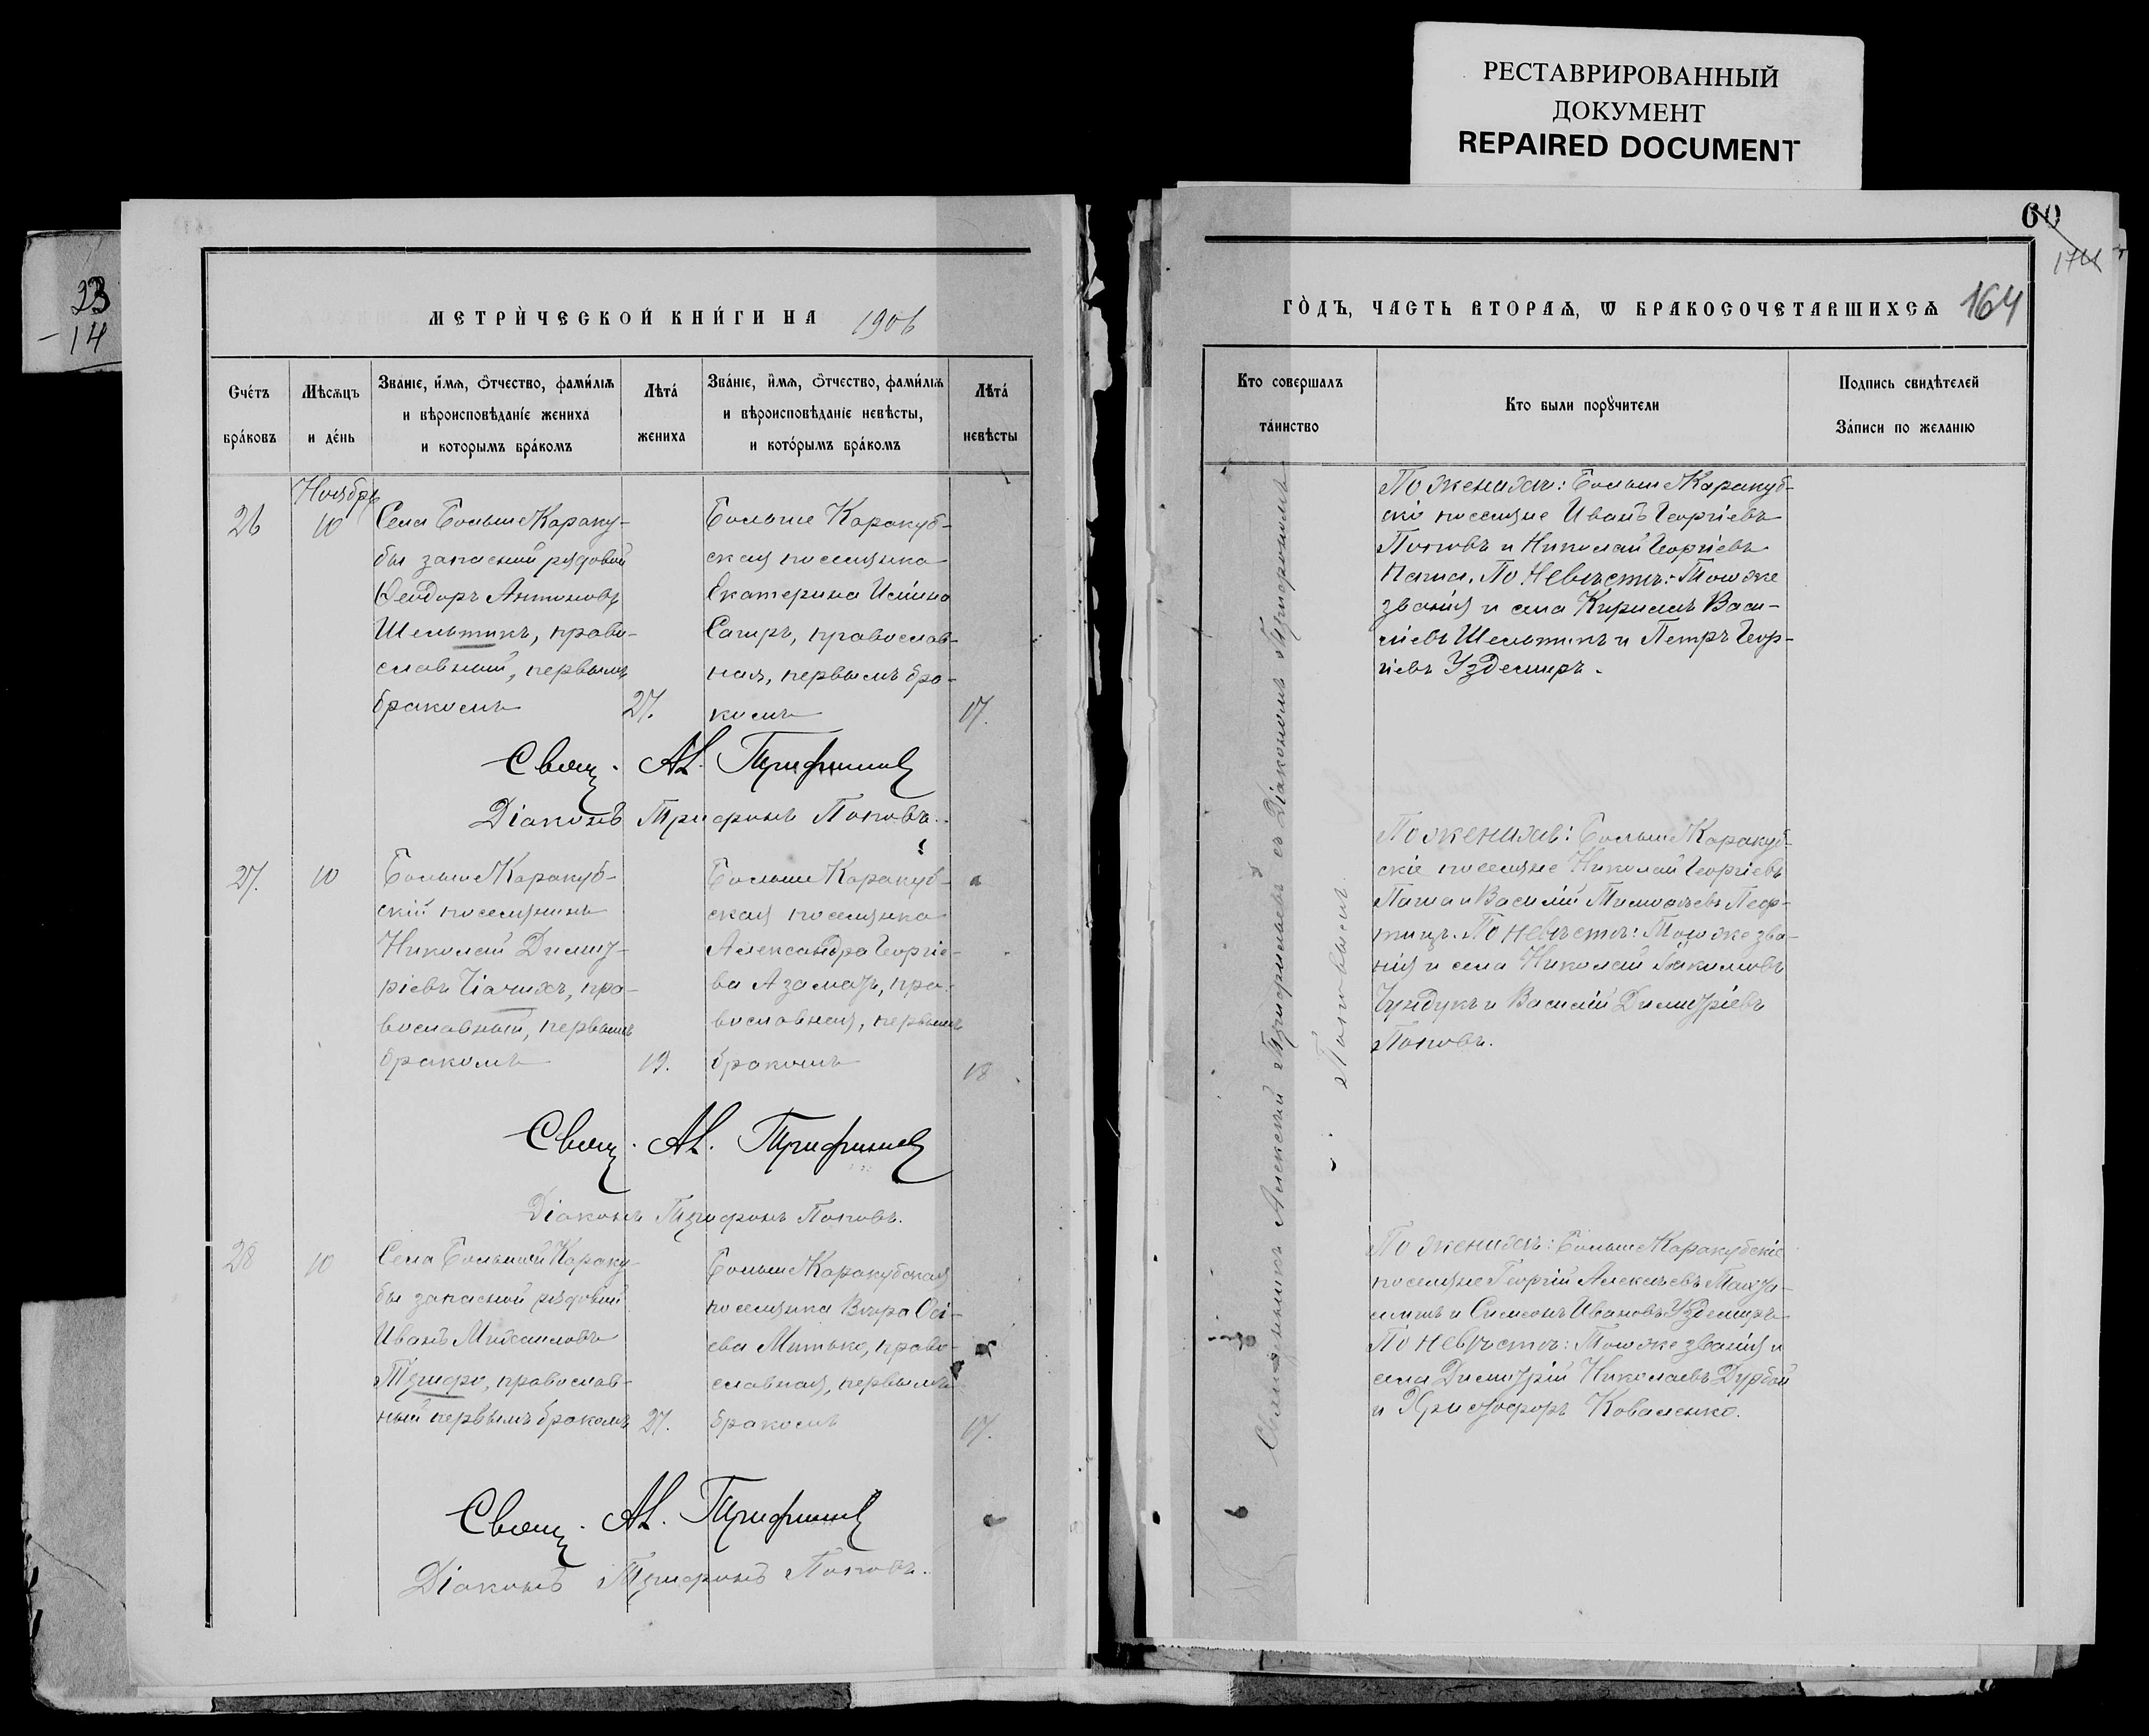 РЕСТАВРИРОВАННЫЙ
ДОКУМЕНТ
REPAIRED DOCUMENT
23
- 14
МЕТРИ́ЧЕСКОЙ КНИ́ГИ НА 1906
Сче́тъ
бра́ковъ
Мѣсѧцъ
и де́нь
Зва́нїе, и́мѧ, ѻ҆́тчество, фами́лїѧ
и вѣроисповѣда́нїе жениха
и которымъ бра́комъ
Лѣта́
жениха
Зва́нїе, и́мѧ, ѻ҆́тчество, фами́лїѧ
и вѣроисповѣда́нїе невѣсты,
и кото́рымъ бра́комъ
Лѣта́
невѣ́сты
Ноября
26
10
Села Больше Караку-
бы запасный рядовой
Ѳеодоръ Антоновъ
Шельтикъ, право-
славный, первымъ
бракомъ
27.
Больше Каракуб-
ская поселянка
Екатерина Ильина
Сагиръ, православ-
ная, первымъ бра-
комъ
17.
Свящ. Ал. Трифильевъ
Діаконъ Трифонъ Поповъ.
27.
10
Больше Каракуб-
скій поселянинъ
Николай Димит-
ріевъ Чіачихъ, пра-
вославный, первымъ
бракомъ
19.
Больше Каракуб-
ская поселянка
Александра Георгіе-
ва Азаматъ, пра-
вославная, первымъ
бракомъ
18
Свящ. Ал. Трифильевъ
Діаконъ Трифонъ Поповъ.
28
10
Села Большой Караку-
бы запасной рядовой
Иванъ Михаиловъ
православ-
ный первымъ бракомъ
27.
Больше Каракубская
поселянка Вѣра
ева Митько, право-
славная, первымъ
бракомъ
17.
Свящ. Ал. Трифильевъ
Діаконъ Трифонъ Поповъ.
60
164
ГО́ДЪ, ЧАСТЬ ВТОРАѦ, Ѡ БРАКОСОЧЕТАВШИХСѦ
Кто совершалъ
та́инство
Кто были порꙋчители
Подпись свидѣтелей
За́писи по желанїю
Священникъ Алексій Трифильевъ съ Діакономъ Трифономъ
Поповымъ.
По женихѣ: Больше Каракуб-
скіе поселяне Иванъ Георгіевъ
Поповъ и Николай Георгіевъ
Папа. По невѣстѣ: Того же
званія и села Кириллъ Васи-
ліевъ Шельтикъ и Петръ Геор-
гіевъ Уздемиръ.
По женихѣ: Больше Каракуб-
скіе поселяне Николай Георгіевъ
Папа и Василій
По невѣстѣ: Того же зва-
нія и села Николай
Чундукъ и Василій Димитріевъ
Поповъ.
По женихѣ: Больше Каракубскіе
поселяне Георгій Алексѣевъ
и Симеонъ Ивановъ Уздемиръ
По невѣстѣ: Того же званія и
села Димитрій Николаевъ Дурбай
и Христофоръ Коваленко.